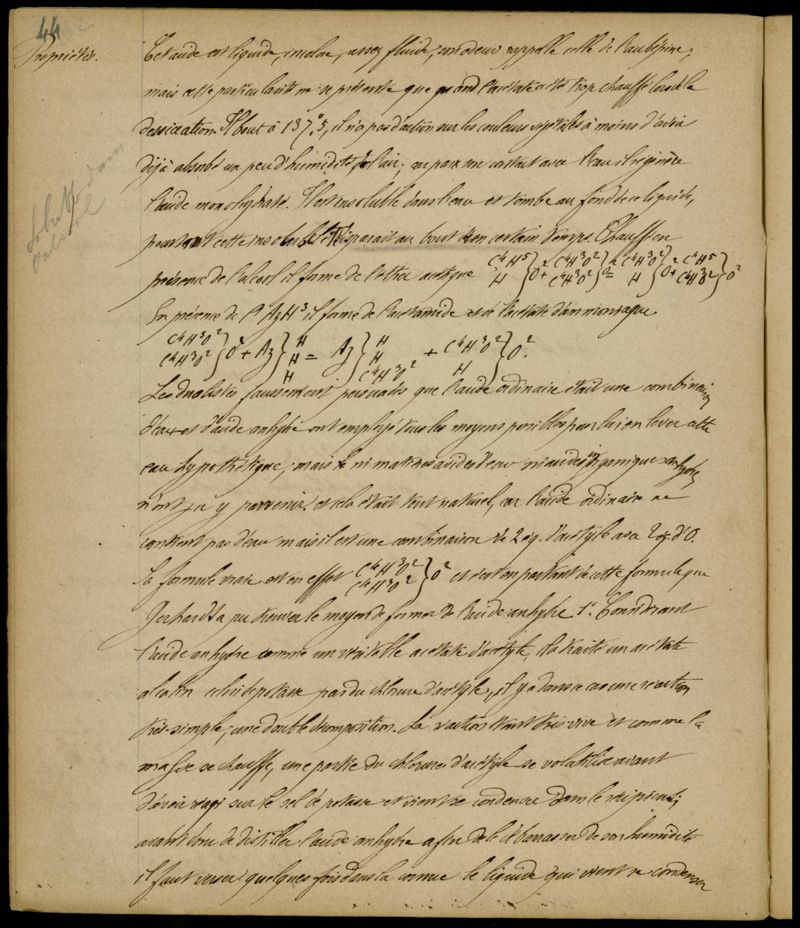 44
Propriétés. Cet acide est liquide, incolore, assez fluide, son odeur rappelle celle de l'aubépine;
mais cette particularité ne se présente que quand l'acétate a été trop chauffé lors de la
dessiccation. Il bout à 137°,5, il n'a pas d'action sur les couleurs végétales à moins d'avoir
déjà absorbé un peu d'humidité à l'air; car par son contact avec l'eau il régénère
l'acide monohydraté. Il est insoluble dans l'eau et tombe au fond de ce liquide,
pourtant cette insolubilité disparait au bout d'un certain temps. Chauffé en
présence de l'alcool il forme de l'éther acétique C4H5 } O2 + C4H3O2 } O2 = C4H3O2 } O2 + C4H5 } O2
H C4H3O2 H C4H3O2
En présence de l'AzH3 il forme de l'acétamide et de l'acétate d'ammoniaque
C4H3O2 } O2 + Az } H = Az } H + C4H3O2 } O2.
C4H3O2 H H H
H C4H3O2
Les dualistes faussement persuadés que l'acide ordinaire était une combinaison
d'eau et d'acide anhydre ont employé tous les moyens possibles pour lui enlever cette
eau hypothétique; mais ni matières avides d'eau ni acides organiques anhydres
n'ont pu y parvenir et cela était tout naturel, car l'acide ordinaire ne
contient pas d'eau mais il est une combinaison de 2 éq. d'acétyle avec 2 éq. d'O.
Sa formule vraie est en effet C4H3O2 } O2 et c'est en partant de cette formule que
C4H3O2
Gerhardt a pu trouver le moyen de former de l'acide anhydre 1° Considérant
l'acide anhydre comme un véritable acétate d'acétyle, il a traité un acétate
alcalin celui de potasse par du chlorure d'acétyle, il y a dans ce cas une réaction
très-simple, une double décomposition. La réaction étant très vive et comme la
masse se chauffe, une partie du chlorure d'acétyle se volatilise avant
d'avoir réagi sur le sel de potasse et vient se condenser dans le récipient;
avant donc de distiller l'acide anhydre afin de le débarrasser de son humidité
il faut verser quelques fois dans la cornue le liquide qui vient se condenser